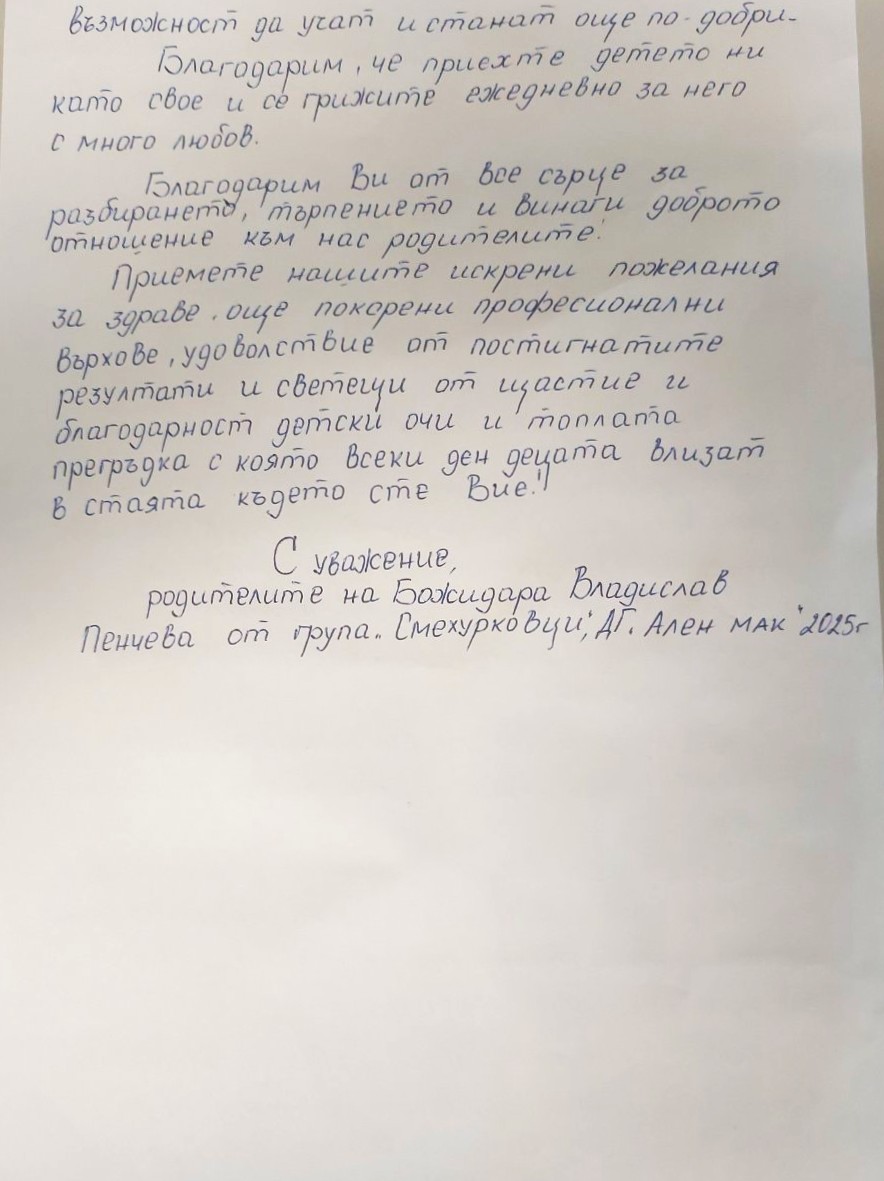 възможност да учат и станат още по-добри-
Благодарим, че приехте детето ни
като свое и се грижите ежедневно за него
с много любов.
Благодарим Ви от все сърце за
разбирането, търпението и винаги доброто
отношение към нас родителите!
Приемете нашите искрени пожелания
за здраве, още покорени професионални
върхове, удоволствие от постигнатите
резултати и светещи от щастие и
благодарност детски очи и топлата
прегръдка с която всеки ден децата влизат
в стаята където сте Вие!"
С уважение,
родителите на Божидара Владислав
Пенчева от група „Смехурковци", ДГ„Ален мак" 2025г